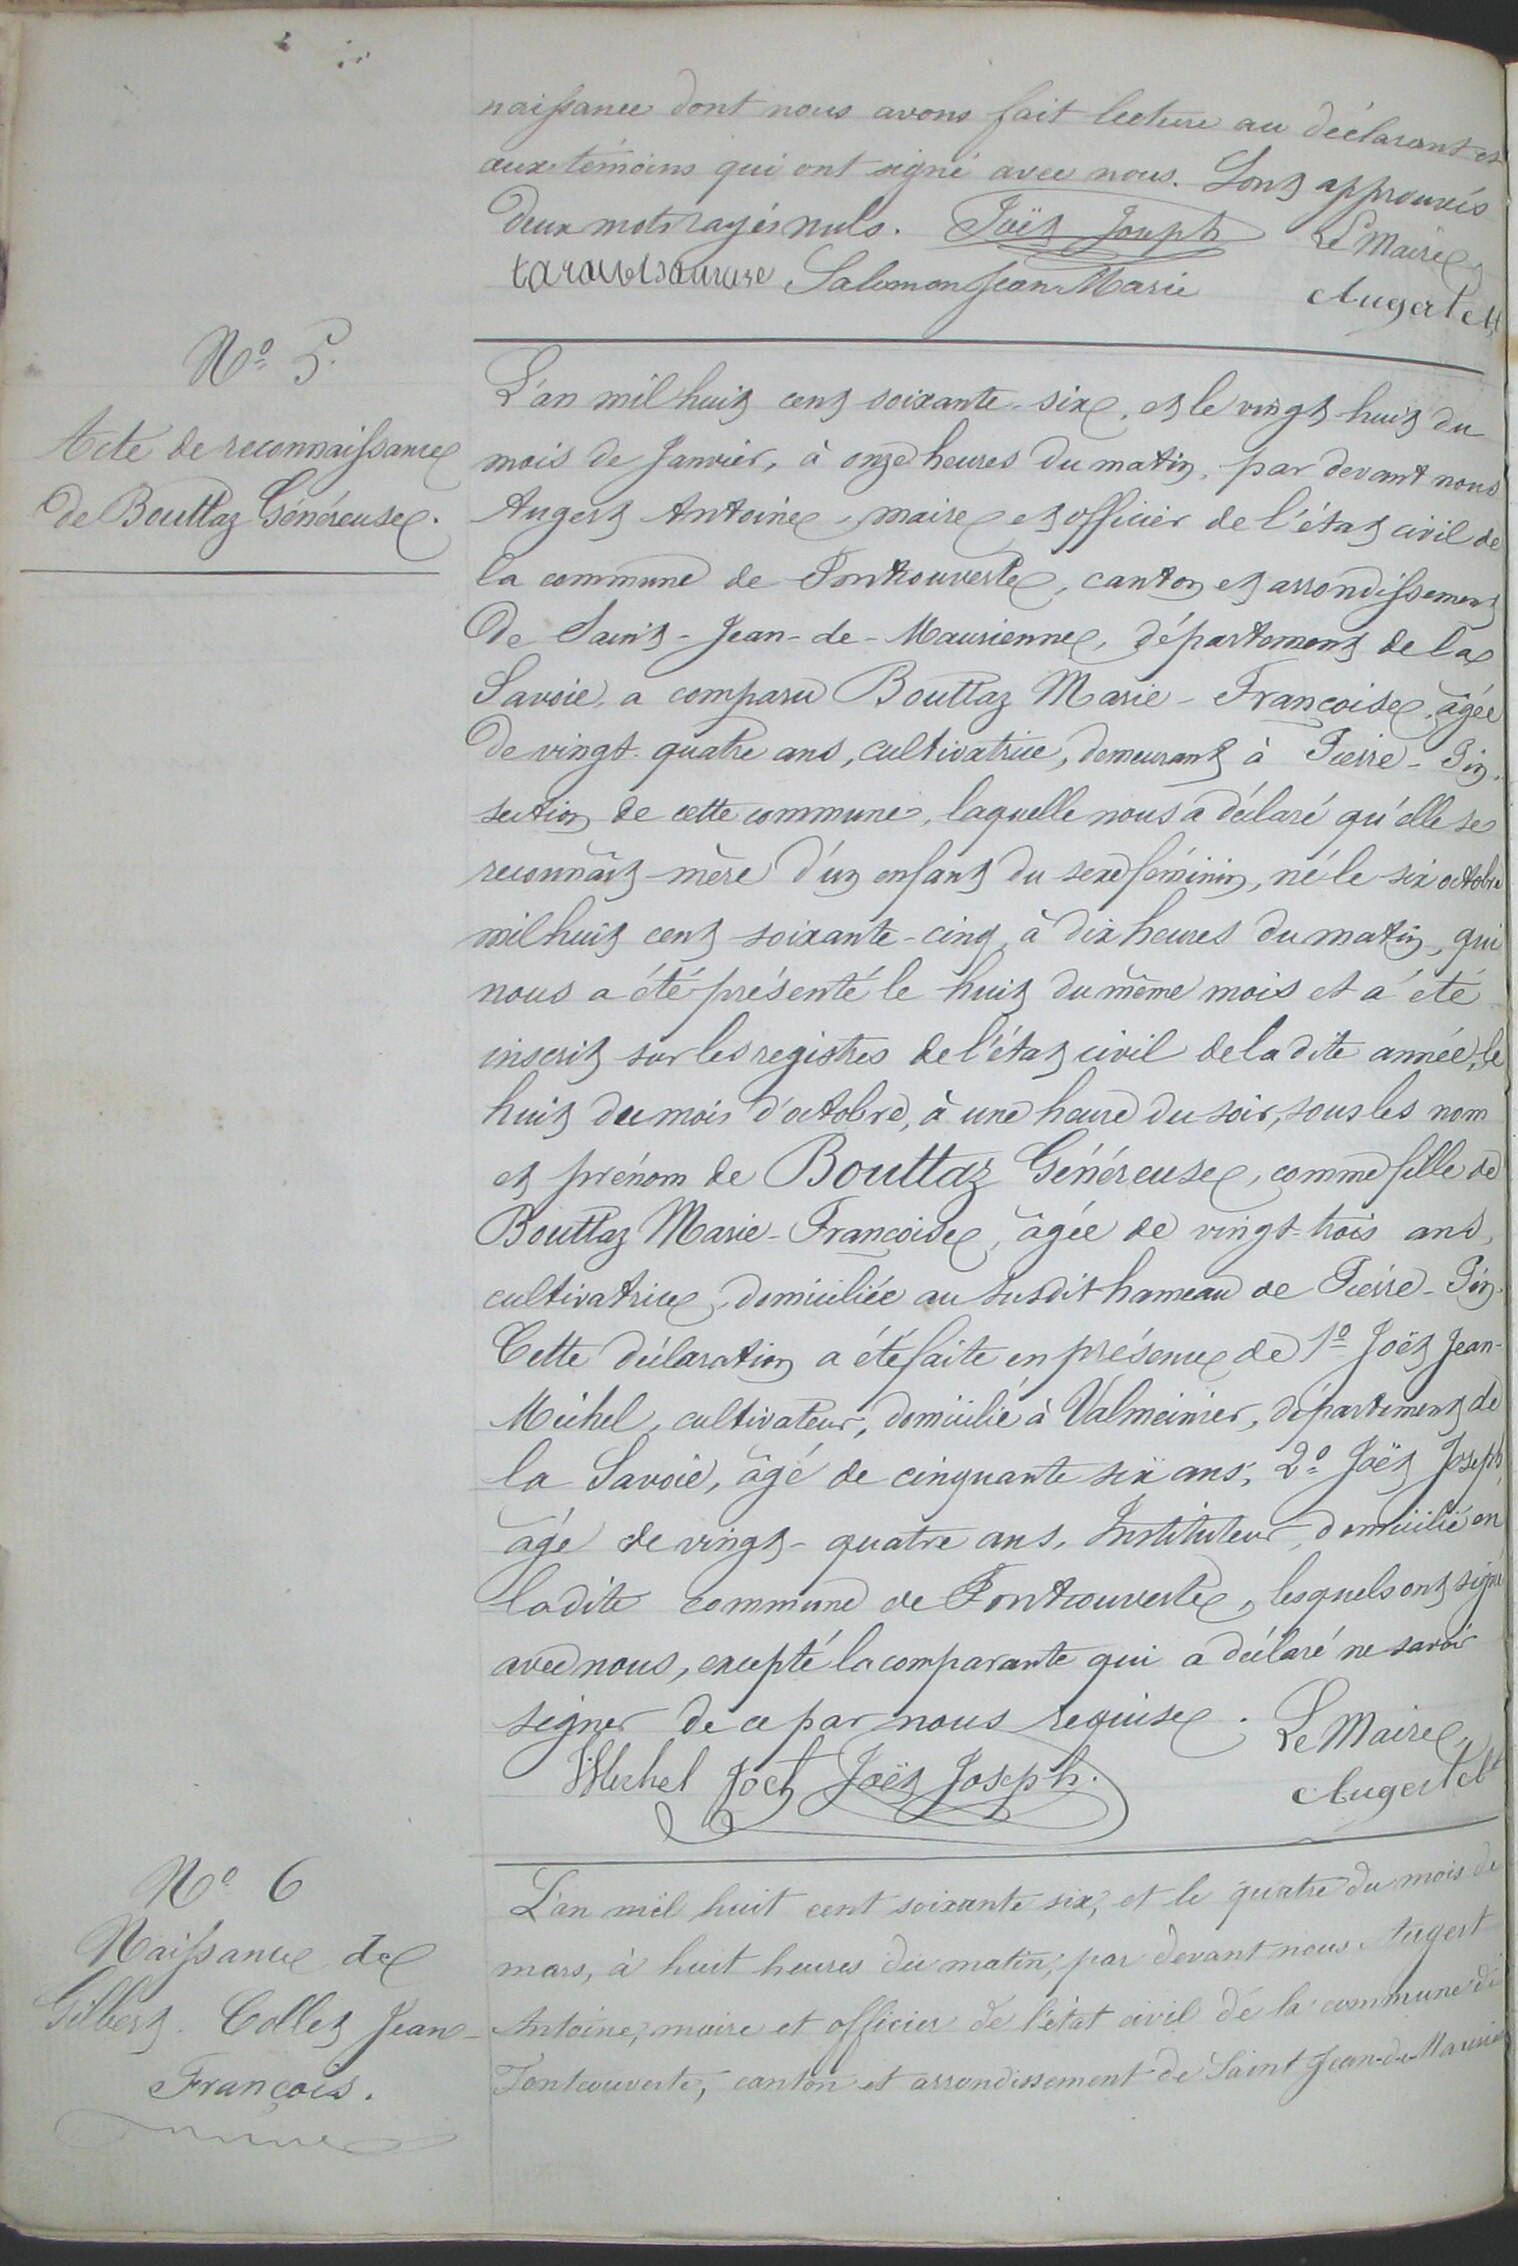 naissance dont nous avons fait lecture au déclarant et
aux témoins qui ont signé avec nous. Sont approuvés
deux mots rayés nuls. Joët Joseph Le Maire,
Salomon Jean Marie Augert Ate
N° 5.
Acte de reconnaissance
de Bouttaz Généreuse.
L'an mil huit cent soixante-six, et le vingt-huit du
mois de Janvier, à onze heures du matin, par devant nous
Augert Antoine, maire et officier de l'état civil de
la commune de Fontcouverte, canton et arrondissement
de Saint-Jean-de-Maurienne, département de la
Savoie, a comparu Bouttaz Marie-Françoise, âgée
de vingt-quatre ans, cultivatrice, demeurant à Pierre-Pin,
section de cette commune, laquelle nous a déclaré qu'elle se
reconnaît mère d'un enfant du sexe féminin, né le six octobre
mil huit cent soixante-cinq, à dix heures du matin, qui
nous a été présenté le huit du même mois et a été
inscrit sur les registres de l'état civil de la dite année, le
huit du mois d'octobre, à une heure du soir, sous les nom
et prénom de Bouttaz Généreuse, comme fille de
Bouttaz Marie-Françoise, âgée de vingt-trois ans,
cultivatrice, domiciliée au susdit hameau de Pierre-Pin.
Cette déclaration a été faite en présence de 1° Joët Jean-
Michel, cultivateur, domicilié à Valmeinier, département de
la Savoie, âgé de cinquante six ans, 2° Joët Joseph,
âgé de vingt-quatre ans, Instituteur, domicilié en
ladite commune de Fontcouverte, lesquels ont signé
avec nous, excepté la comparante qui a déclaré ne savoir
signer de ce par nous requise. Le Maire,
Michel Joet Joët Joseph. Augert Ate
N° 6
Naissance de
Gilbert-Collet Jean-
François.
L'an mil huit cent soixante six, et le quatre du mois de
mars, à huit heures du matin, par devant nous Augert
Antoine, maire et officier de l'état civil de la commune de
Fontcouverte, canton et arrondissement de Saint Jean-de-Maurien